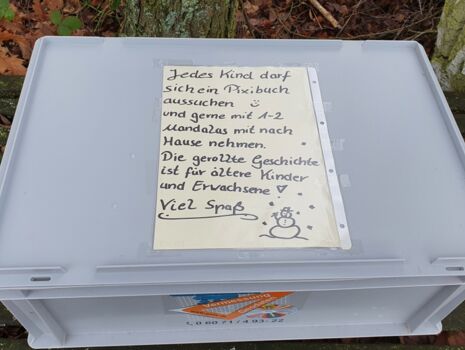 Jedes Kind darf
sich ein Pixibuch
aussuchen ☺
und gerne mit 1-2
Mandalas mit nach
Hause nehmen.
Die gerollte Geschichte
ist für ältere Kinder
und Erwachsene ♡
Viel Spaß
Vermessung